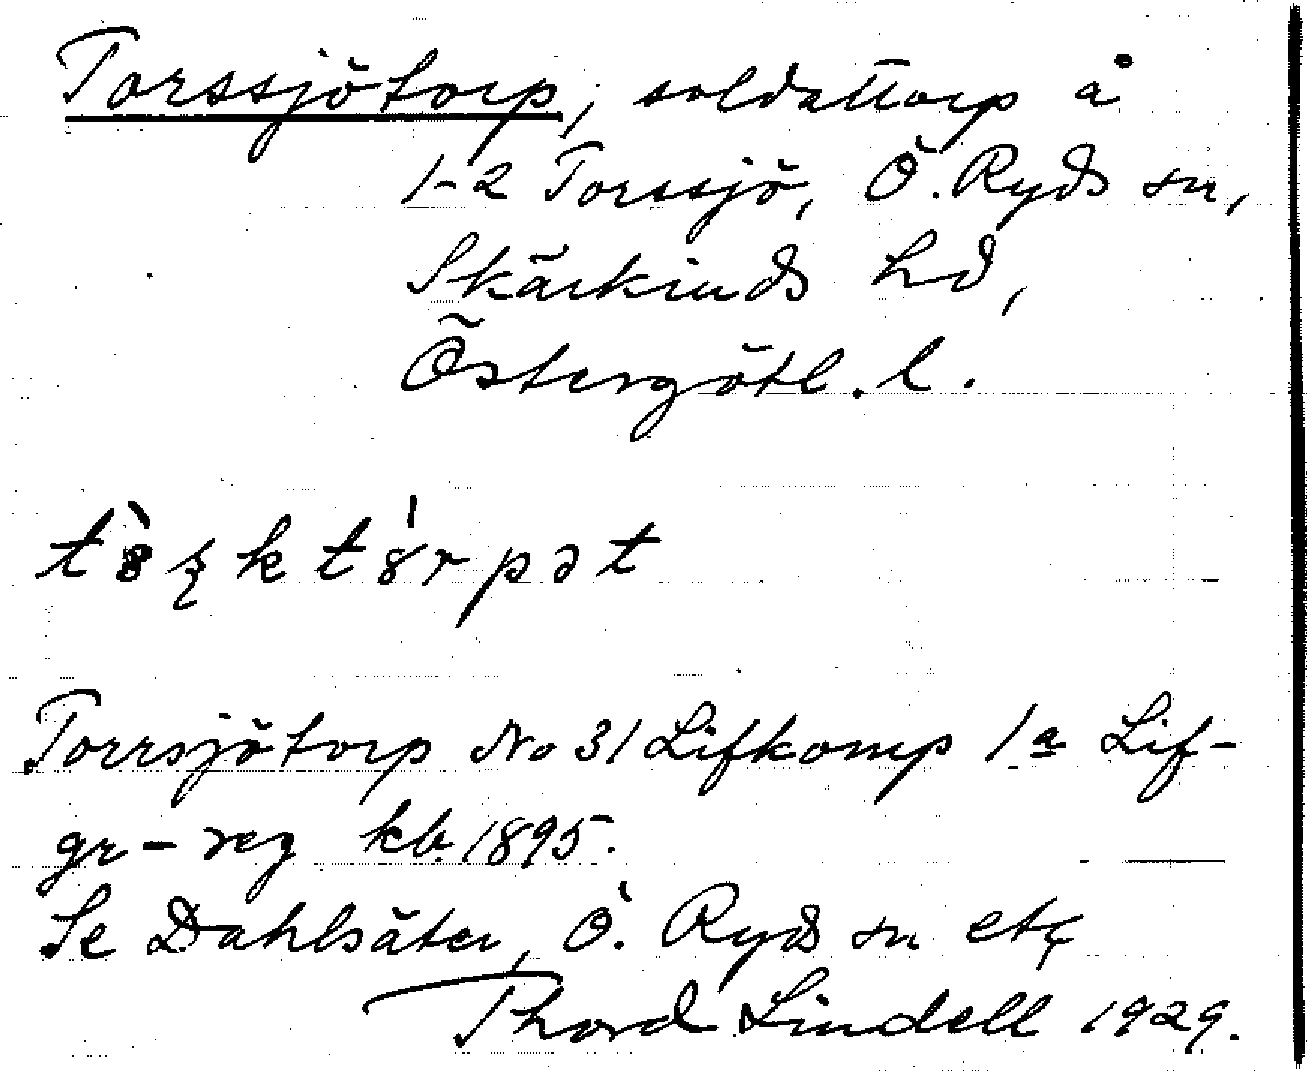 Torssjötorp, soldattorp å
1-2 Torssjö, Ö. Ryds sn,
Skärkinds hd,
Östergötl. l.
Torrsjötorp No 31 Lifkomp 1a Lif-
gr-reg kb. 1895.
Se Dahlsäter, Ö. Ryds sn etc
Thord Lindell 1929.